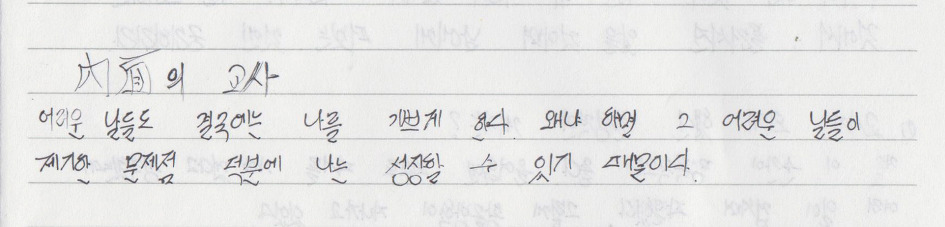 内面의 고사
어려운 날들도 결국에는 나를 기쁘게 한다 왜냐 하면 그 어려운 날들이
제기한 문제점 덕분에 나는 성장할 수 있기 때문이다.